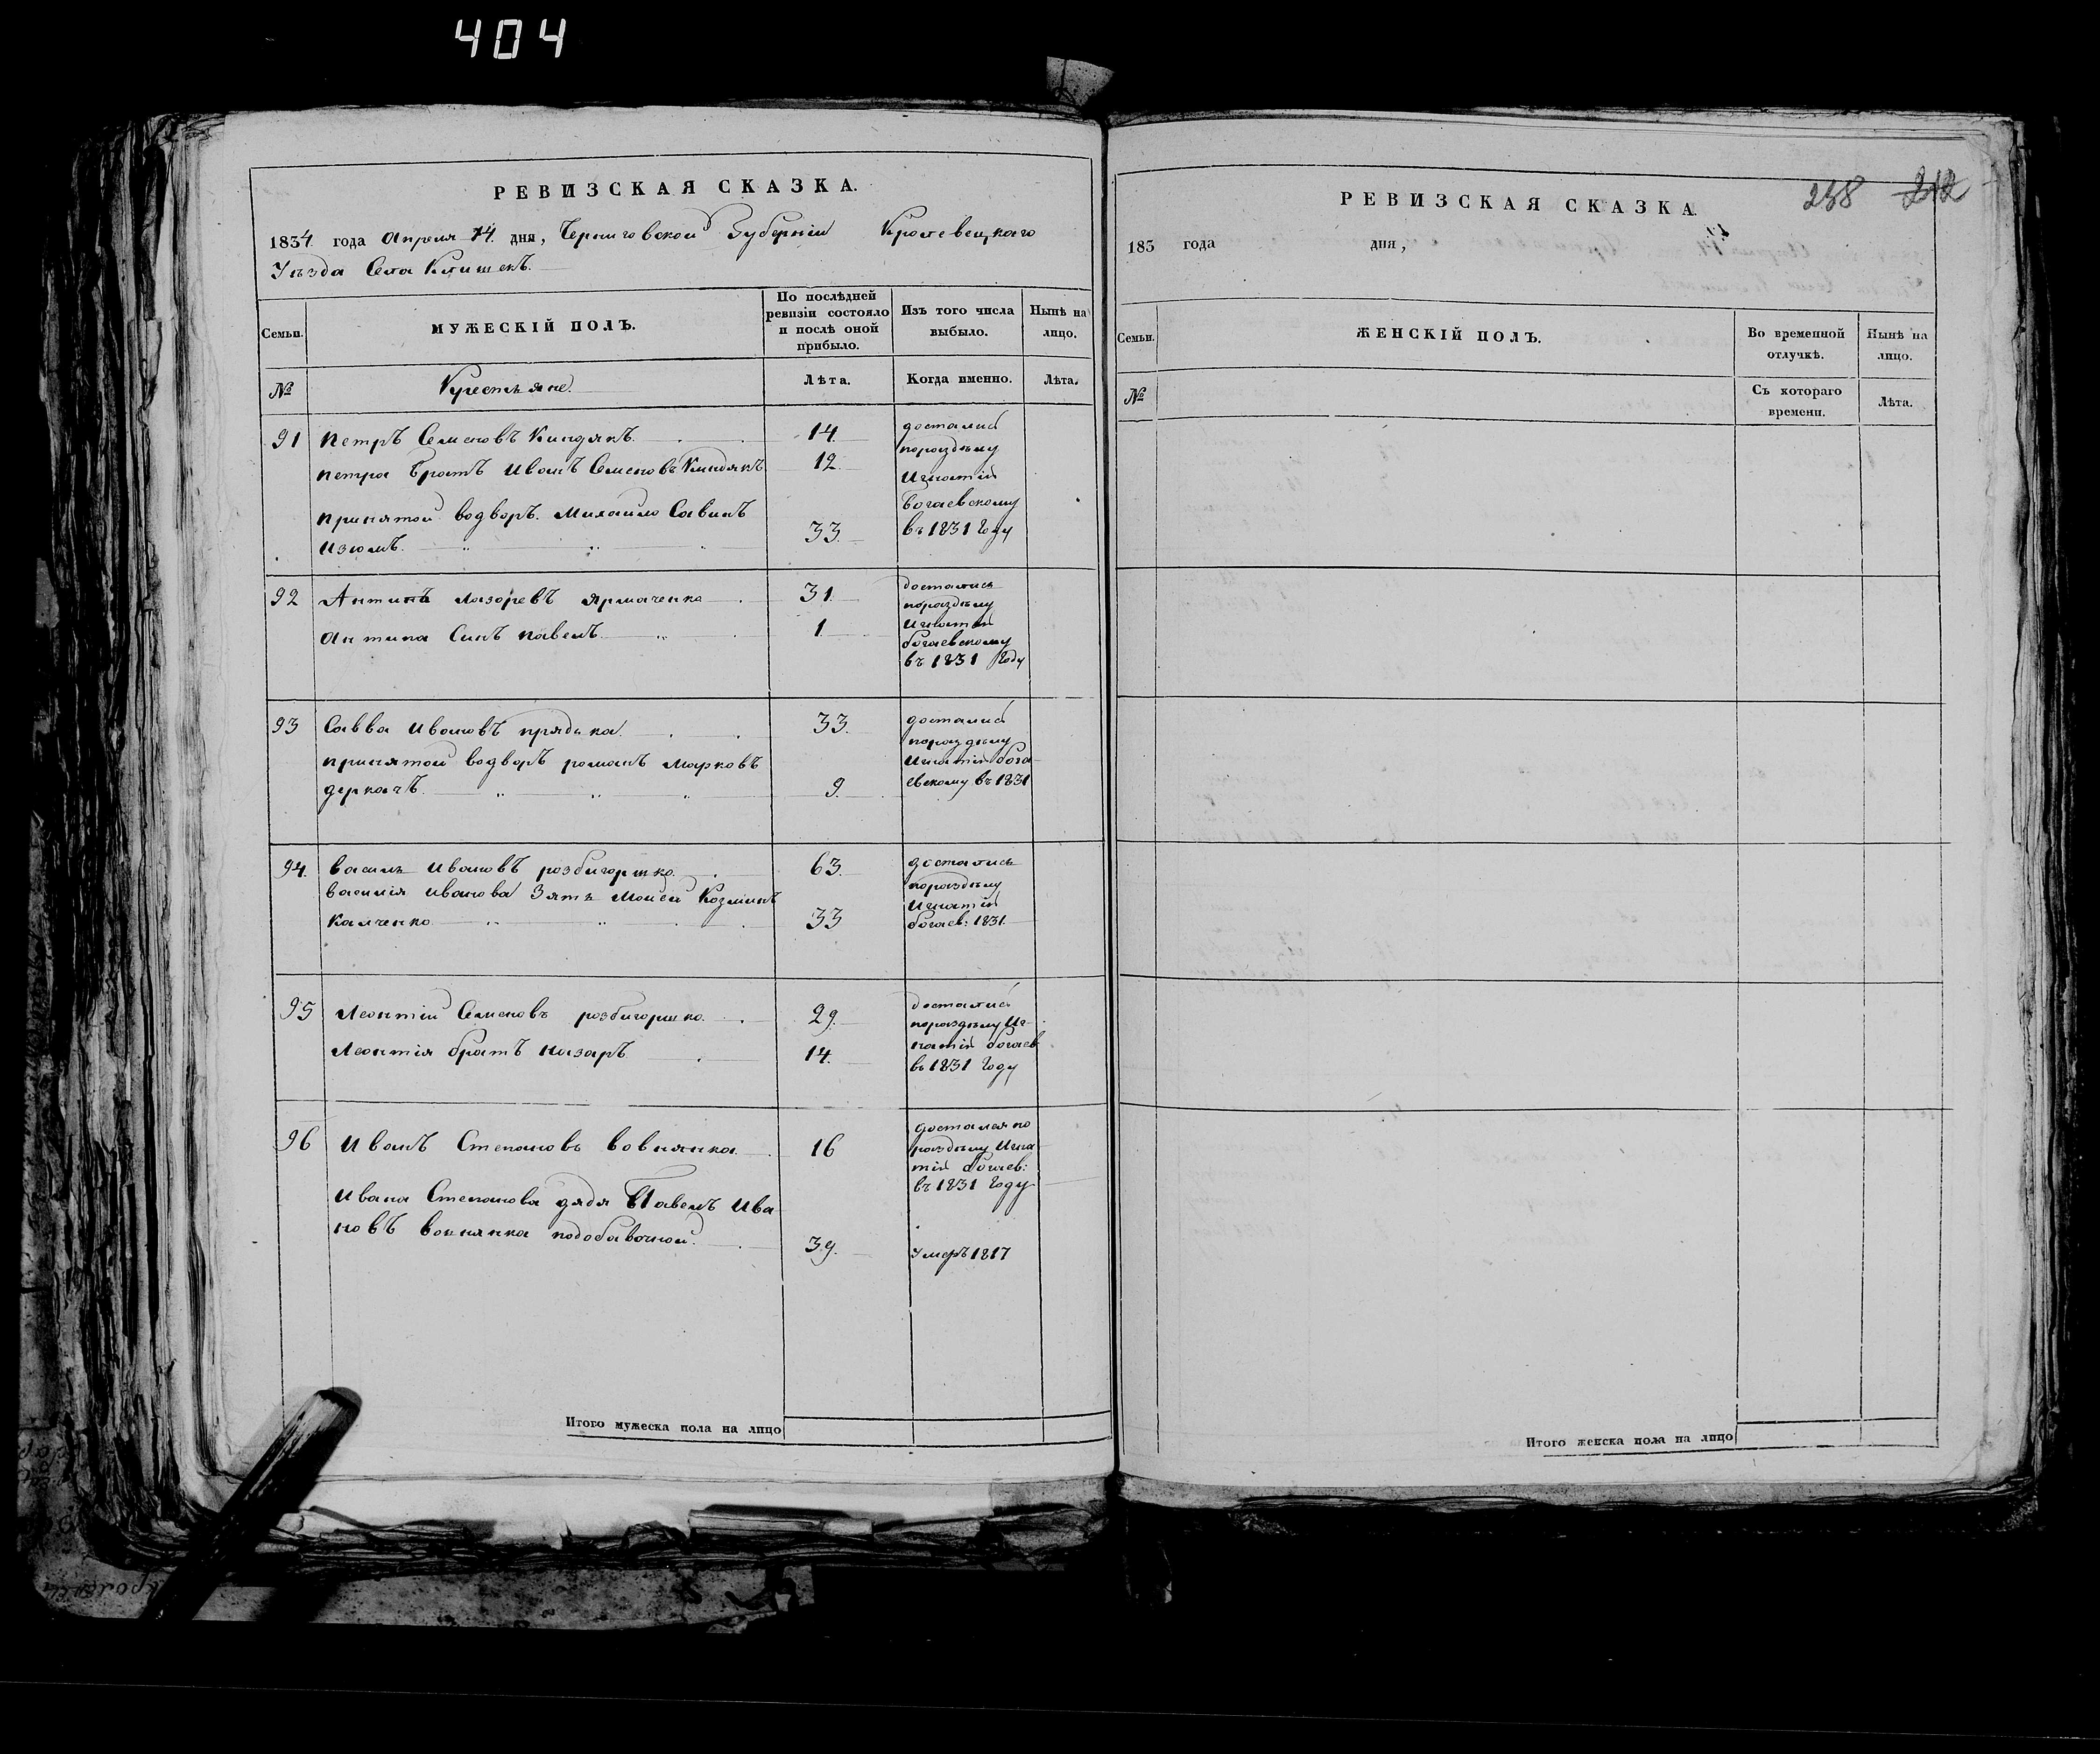 404
РЕВИЗСКАЯ СКАЗКА.
1834 года Апреля 14. дня, Черниговской Губерніи Кролевецкаго
Уѣзда Села Клишекъ.
Семьи.
МУЖЕСКІЙ ПОЛЪ.
По послѣдней
ревизіи состояло
и послѣ оной
прибыло.
Изъ того числа
выбыло.
Нынѣ на
лицо.
№
Крестьяне.
Лѣта.
Когда именно.
Лѣта.
91 Петръ Семеновъ Киндякъ 14. достались
Петра братъ Иванъ Семеновъ Киндякъ 12. пораздѣлу
Игнатій
принятой водворъ. Михайло Савинъ Богаевскому
Изюмъ. 33. въ 1831 году
92 Антипъ Лазоревъ Ярмаченко 31. достались
пораздѣлу
Антипа Сынъ павелъ 1. Игнатій
богаевскому
въ 1831 Году
93 Савва Ивановъ прядка. 33. достались
пораздѣлу
принятой водворъ романъ Марковъ Игнатій бога
деркачъ. 9. евскому въ 1831
94. василь Ивановъ розбигоршко 63. достались
василія Иванова Зять Моисей Козминъ пораздѣлу
Игнатій
Калченко 33 богаев: 1831.
95 Леонтій Семеновъ розбигоршко. 29. достались
пораздѣлу Иг-
Леонтія братъ назаръ 14. натій богаев
въ 1831 Году
96 Иванъ Степановъ вовнянка. 16 достался по
раздѣлу Игна
тій богаев:
въ 1831 Году
Ивана Степанова дядя Павелъ Ива
новъ вовнянка подобавочной. 39. Умеръ 1817
Итого мужеска пола на лицо
238 212
РЕВИЗСКАЯ СКАЗКА.
183 года дня,
Семьи.
ЖЕНСКІЙ ПОЛЪ.
Во временной
отлучкѣ.
Нынѣ на
лицо.
№
Съ котораго
времени.
Лѣта.
Итого женска пола на лицо